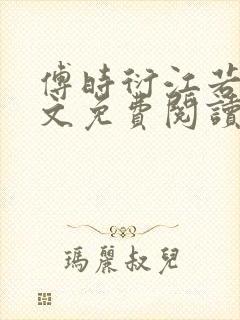 傅時衍江若
文免費閱讀
瑪麗叔兒